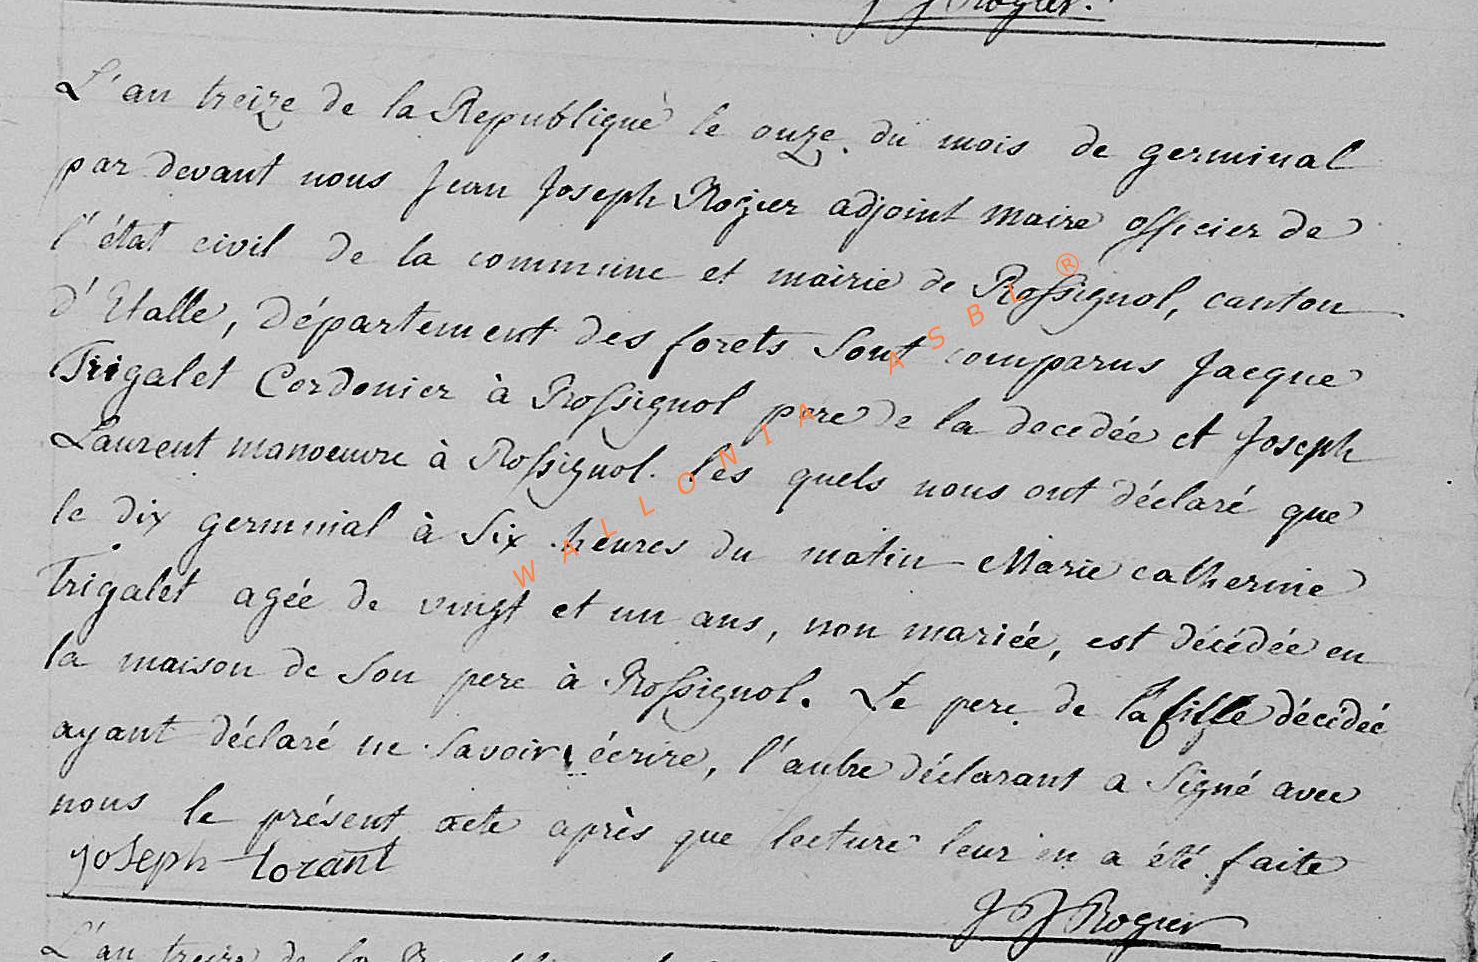 J J Rogier.
L'an treize de la Republique le onze du mois de germinal
par devant nous Jean Joseph Rogier adjoint maire officier de
l'état civil de la commune et mairie de Rossignol, canton
d'Etalle, département des forets sont comparus Jacque
Trigalet Cordonier à Rossignol pere de la decedée et Joseph
Laurent manoeuvre à Rossignol. les quels nous ont déclaré que
le dix germinal à six heures du matin Marie catherine
Trigalet agée de vingt et un ans, non mariée, est décédée en
la maison de son pere à Rossignol. Le pere de la fille décédée
ayant déclaré ne savoir écrire, l'autre déclarant a signé avec
nous le présent acte après que lecture leur en a été faite
joseph lorant
J J Rogier
L'an treize de la
WALLONIA ASBL ®